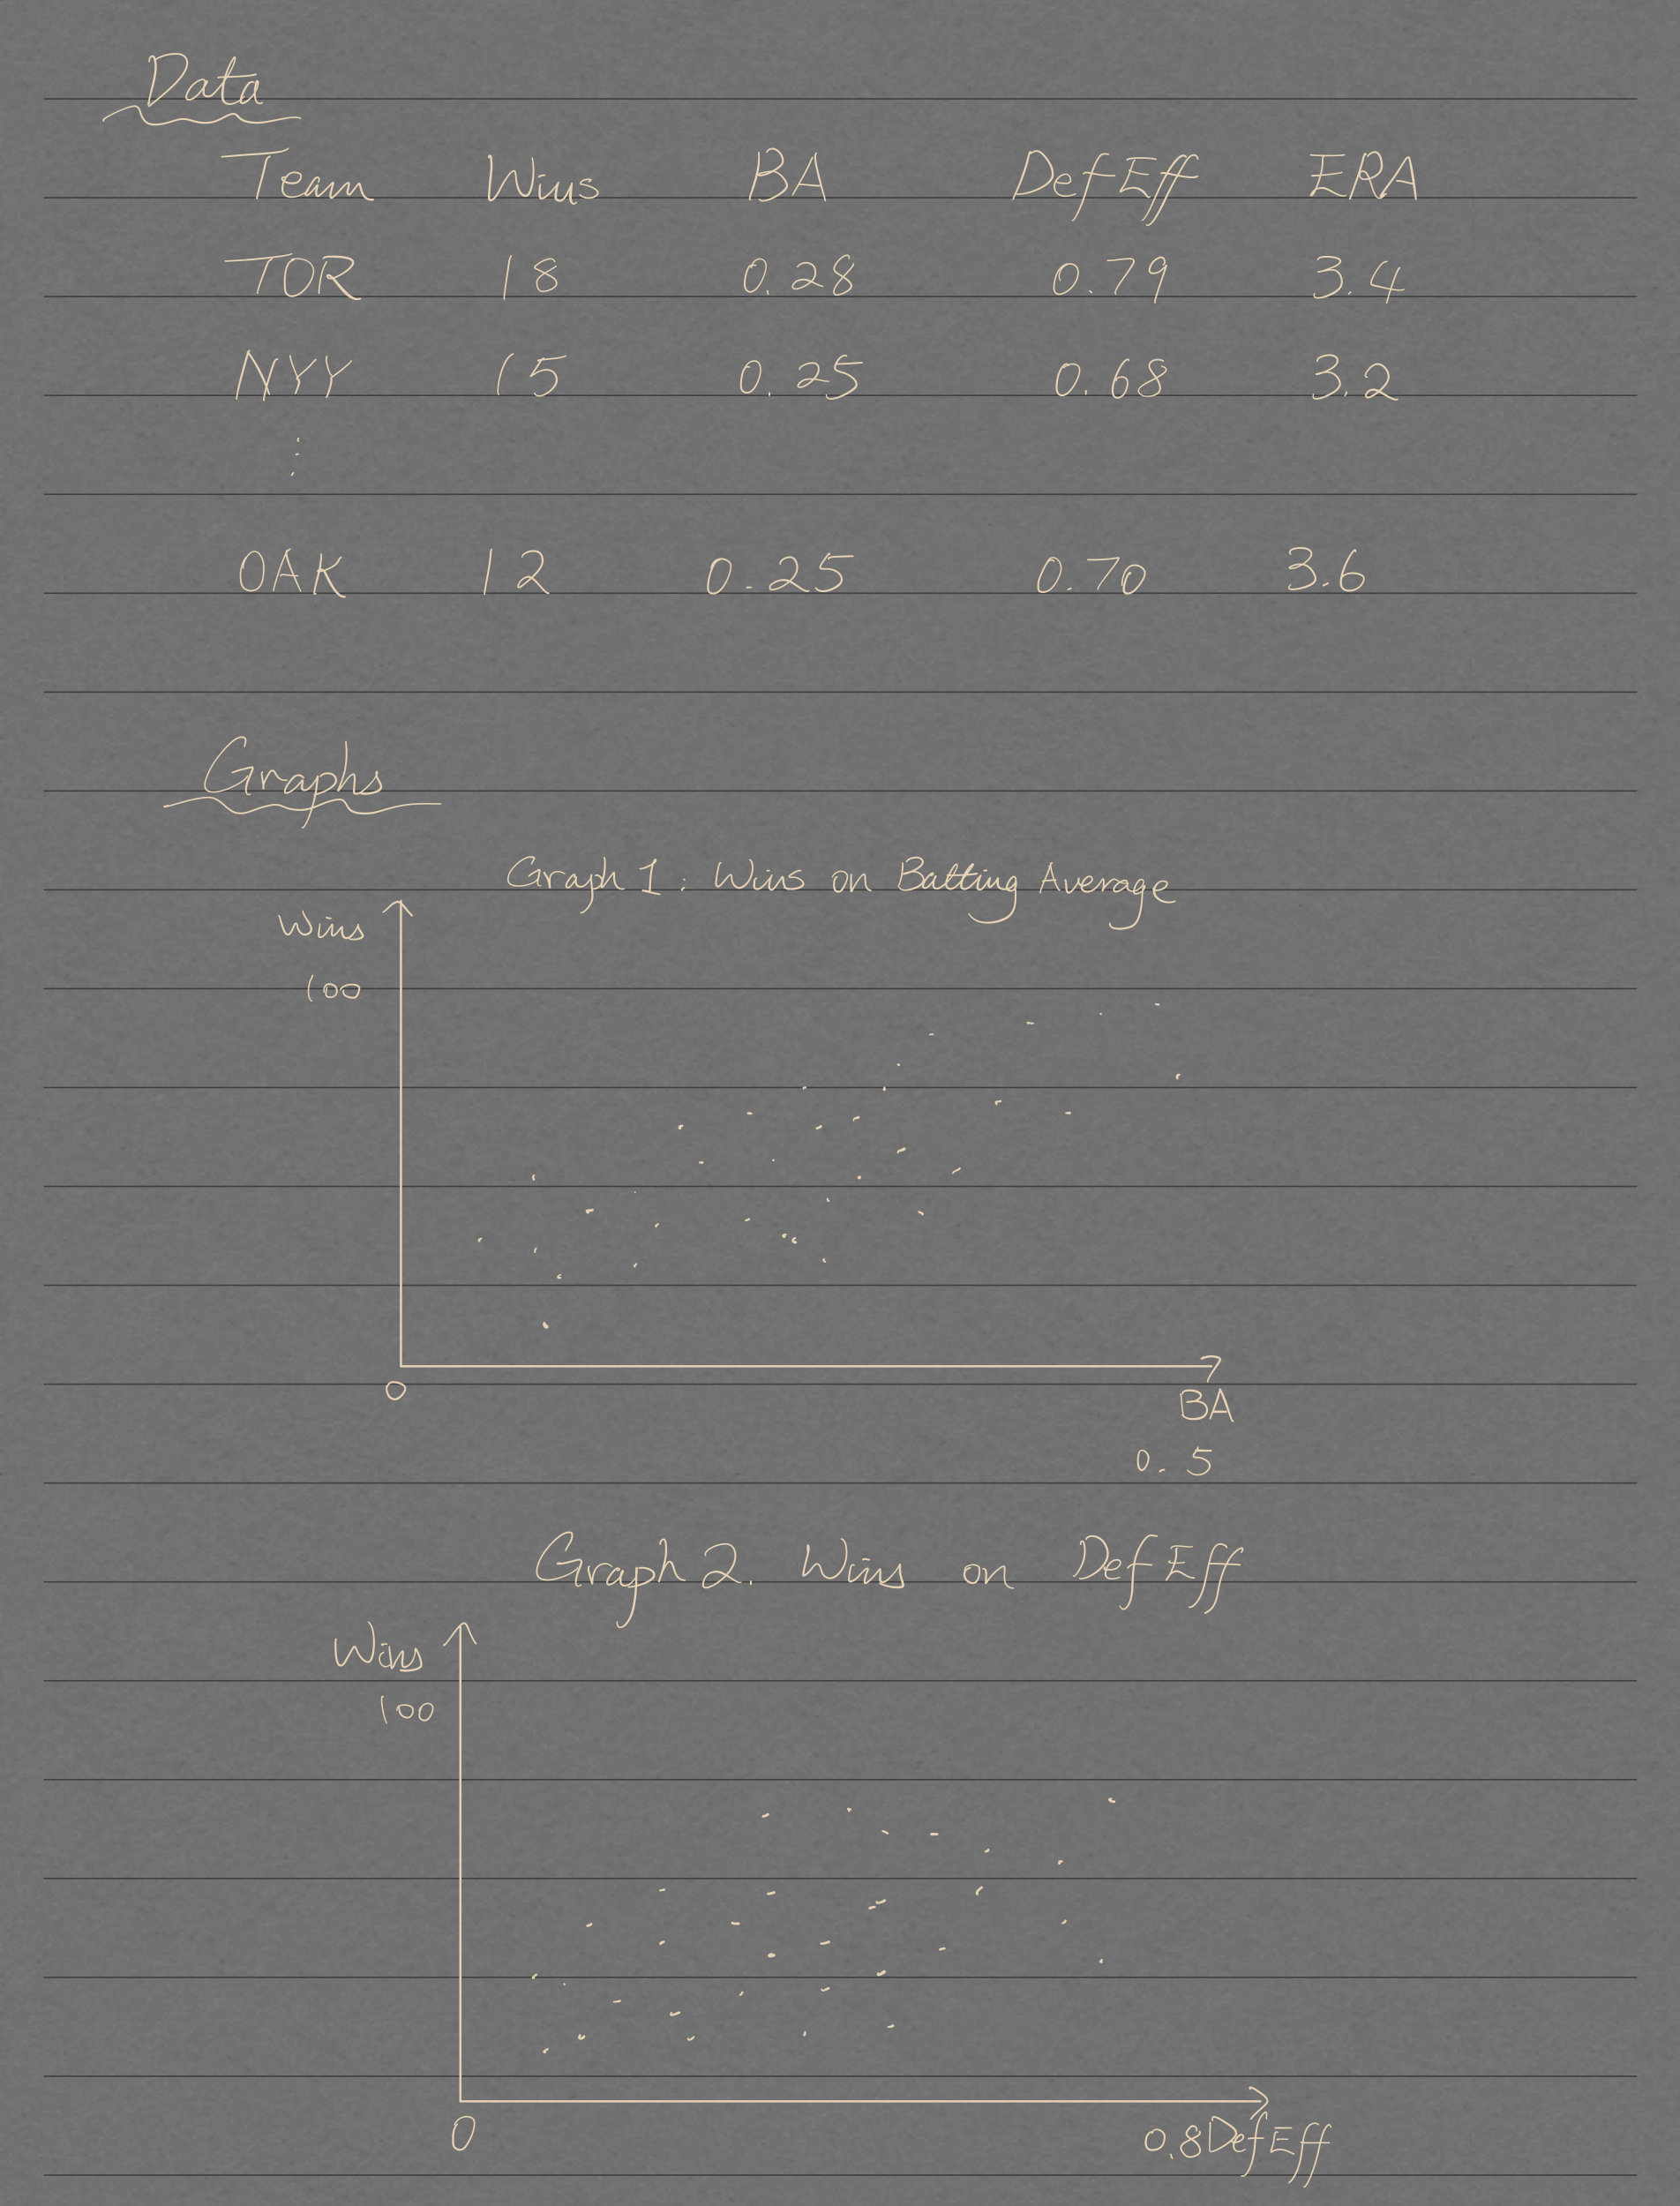 Data
Team Wins BA DefEff ERA
TOR 18 0.28 0.79 3.4
NYY 15 0.25 0.68 3.2
⋮
OAK 12 0.25 0.70 3.6
Graphs
Graph 1: Wins on Batting Average
Wins
100
0
BA
0.5
Graph 2. Wins on DefEff
Wins
100
0 0.8 DefEff